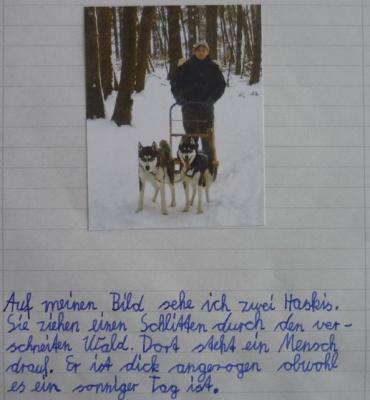 Auf meinen Bild sehe ich zwei Haskis.
Sie ziehen einen Schlitten durch den ver-
schneiten Wald. Dort steht ein Mensch
drauf. Er ist dick angezogen obwohl
es ein sonniger Tag ist.